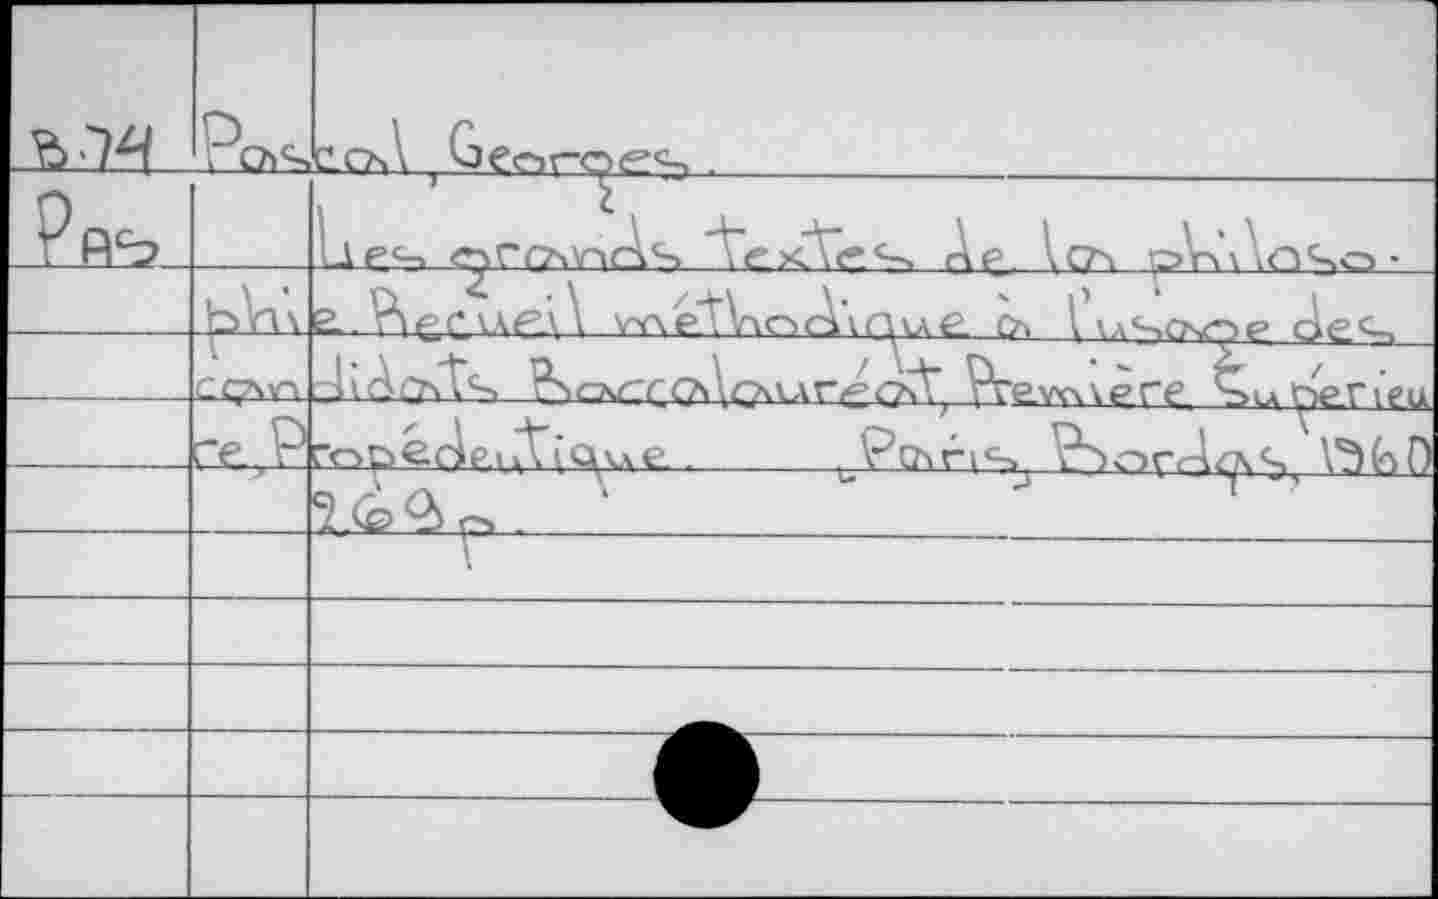 B.74 Pascal, Georges.
PAS Les grands textes de la philoso-
phie. Recueil méthodique à l'usage des
candidats Baccalauréat, Première Supérieu
re, Propédeutique. Paris, Bordas, 1960
269p.